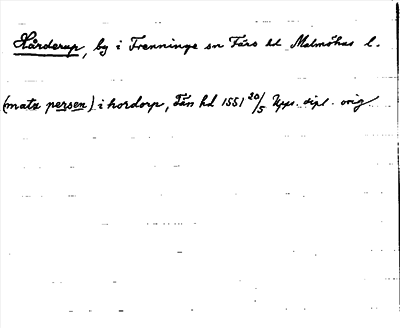 Hårderup, by i Trenninge sn Färs hd Malmöhus l.
(mats persen) i hordorp, Färs hd 1551 20/5 Upps. dipl. orig